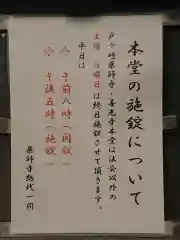 本堂の施錠について
戸ヶ崎薬師寺・善光寺本堂は法会以外の
土曜・日曜日は終日施錠させて頂きます。
平日は
◎午前八時(開錠)
◎午後五時(施錠)
薬師寺総代一同